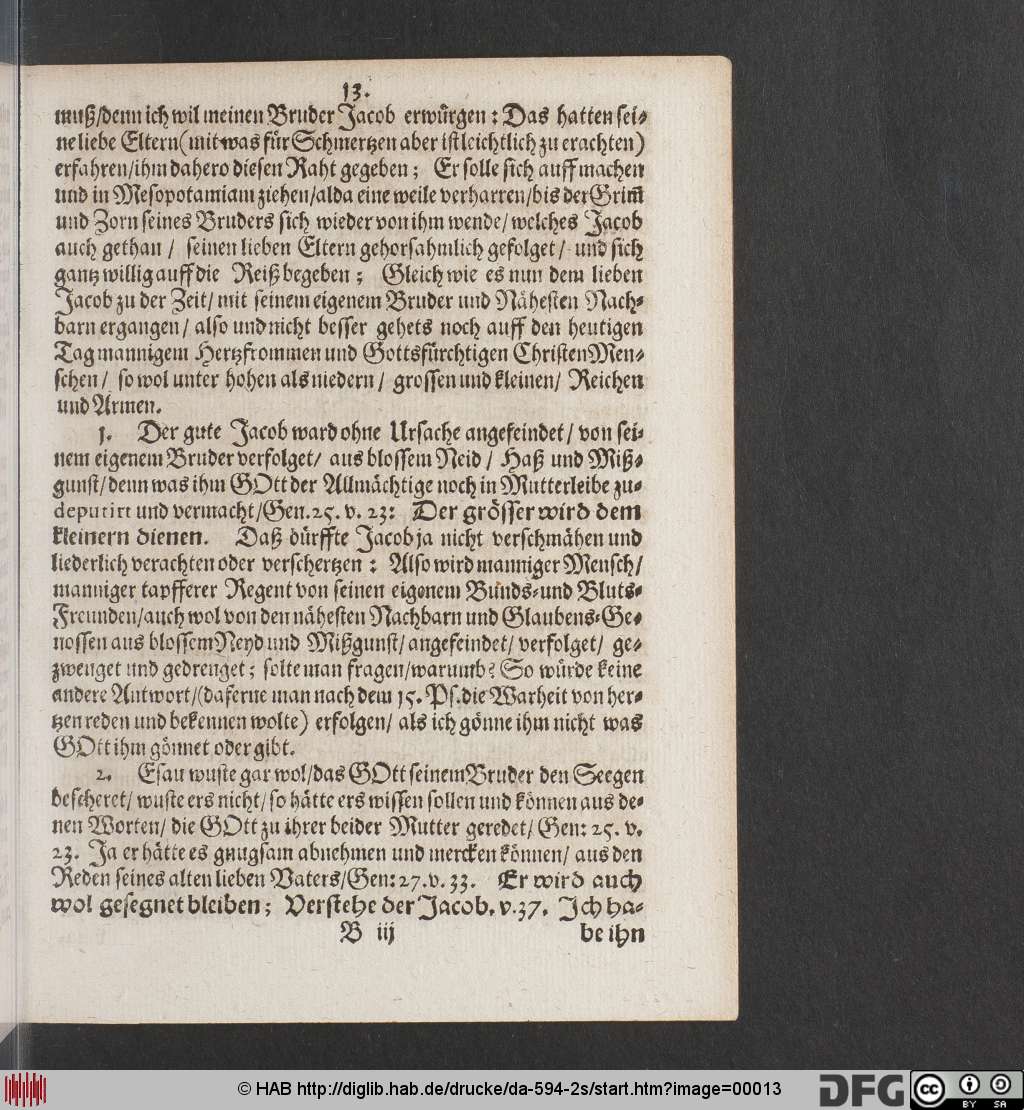 13.
muß/denn ich wil meinen Bruder Jacob erwürgen: Das hatten sei-
ne liebe Eltern (mit was für Schmertzen aber ist leichtlich zu erachten)
erfahren/ihm dahero diesen Raht gegeben; Er solle sich auff machen
und in Mesopotamiam ziehen/alda eine weile verharren/bis der Grim̃
und Zorn seines Bruders sich wieder von ihm wende/welches Jacob
auch gethan/ seinen lieben Eltern gehorsahmlich gefolget/ und sich
gantz willig auff die Reiß begeben; Gleich wie es nun dem lieben
Jacob zu der Zeit/ mit seinem eigenem Bruder und Nähesten Nach-
barn ergangen/ also und nicht besser gehets noch auff den heutigen
Tag mannigem Hertzfrommen und Gottsfürchtigen Christen Men-
schen/ so wol unter hohen als niedern/ grossen und kleinen/ Reichen
und Armen.
1. Der gute Jacob ward ohne Ursache angefeindet/ von sei-
nem eigenem Bruder verfolget/ aus blossem Neid/ Haß und Miß-
gunst/denn was ihm GOtt der Allmächtige noch in Mutterleibe zu-
deputirt und vermacht/Gen.25. v. 23: Der grösser wird dem
kleinern dienen. Daß dürffte Jacob ja nicht verschmähen und
liederlich verachten oder verschertzen: Also wird manniger Mensch/
manniger tapfferer Regent von seinen eigenem Bunds-und Bluts-
Freunden/auch wol von den nähesten Nachbarn und Glaubens-Ge-
nossen aus blossem Neyd und Mißgunst/angefeindet/ verfolget/ ge-
zwenget und gedrenget; solte man fragen/warumb? So würde keine
andere Antwort/(daferne man nach dem 15. Ps. die Warheit von her-
tzen reden und bekennen wolte) erfolgen/ als ich gönne ihm nicht was
GOtt ihm gönnet oder gibt.
2. Esau wuste gar wol/das GOtt seinem Bruder den Seegen
bescheret/wuste ers nicht/so hätte ers wissen sollen und können aus de-
nen Worten/ die GOtt zu ihrer beider Mutter geredet/ Gen: 25. v.
23. Ja er hätte es gnugsam abnehmen und mercken können/ aus den
Reden seines alten lieben Vaters/Gen: 27. v. 33. Er wird auch
wol gesegnet bleiben; Verstehe der Jacob. v. 37. Ich ha-
B iij be ihn
© HAB http://diglib.hab.de/drucke/da-594-2s/start.htm?image=00013
DFG
cc BY SA